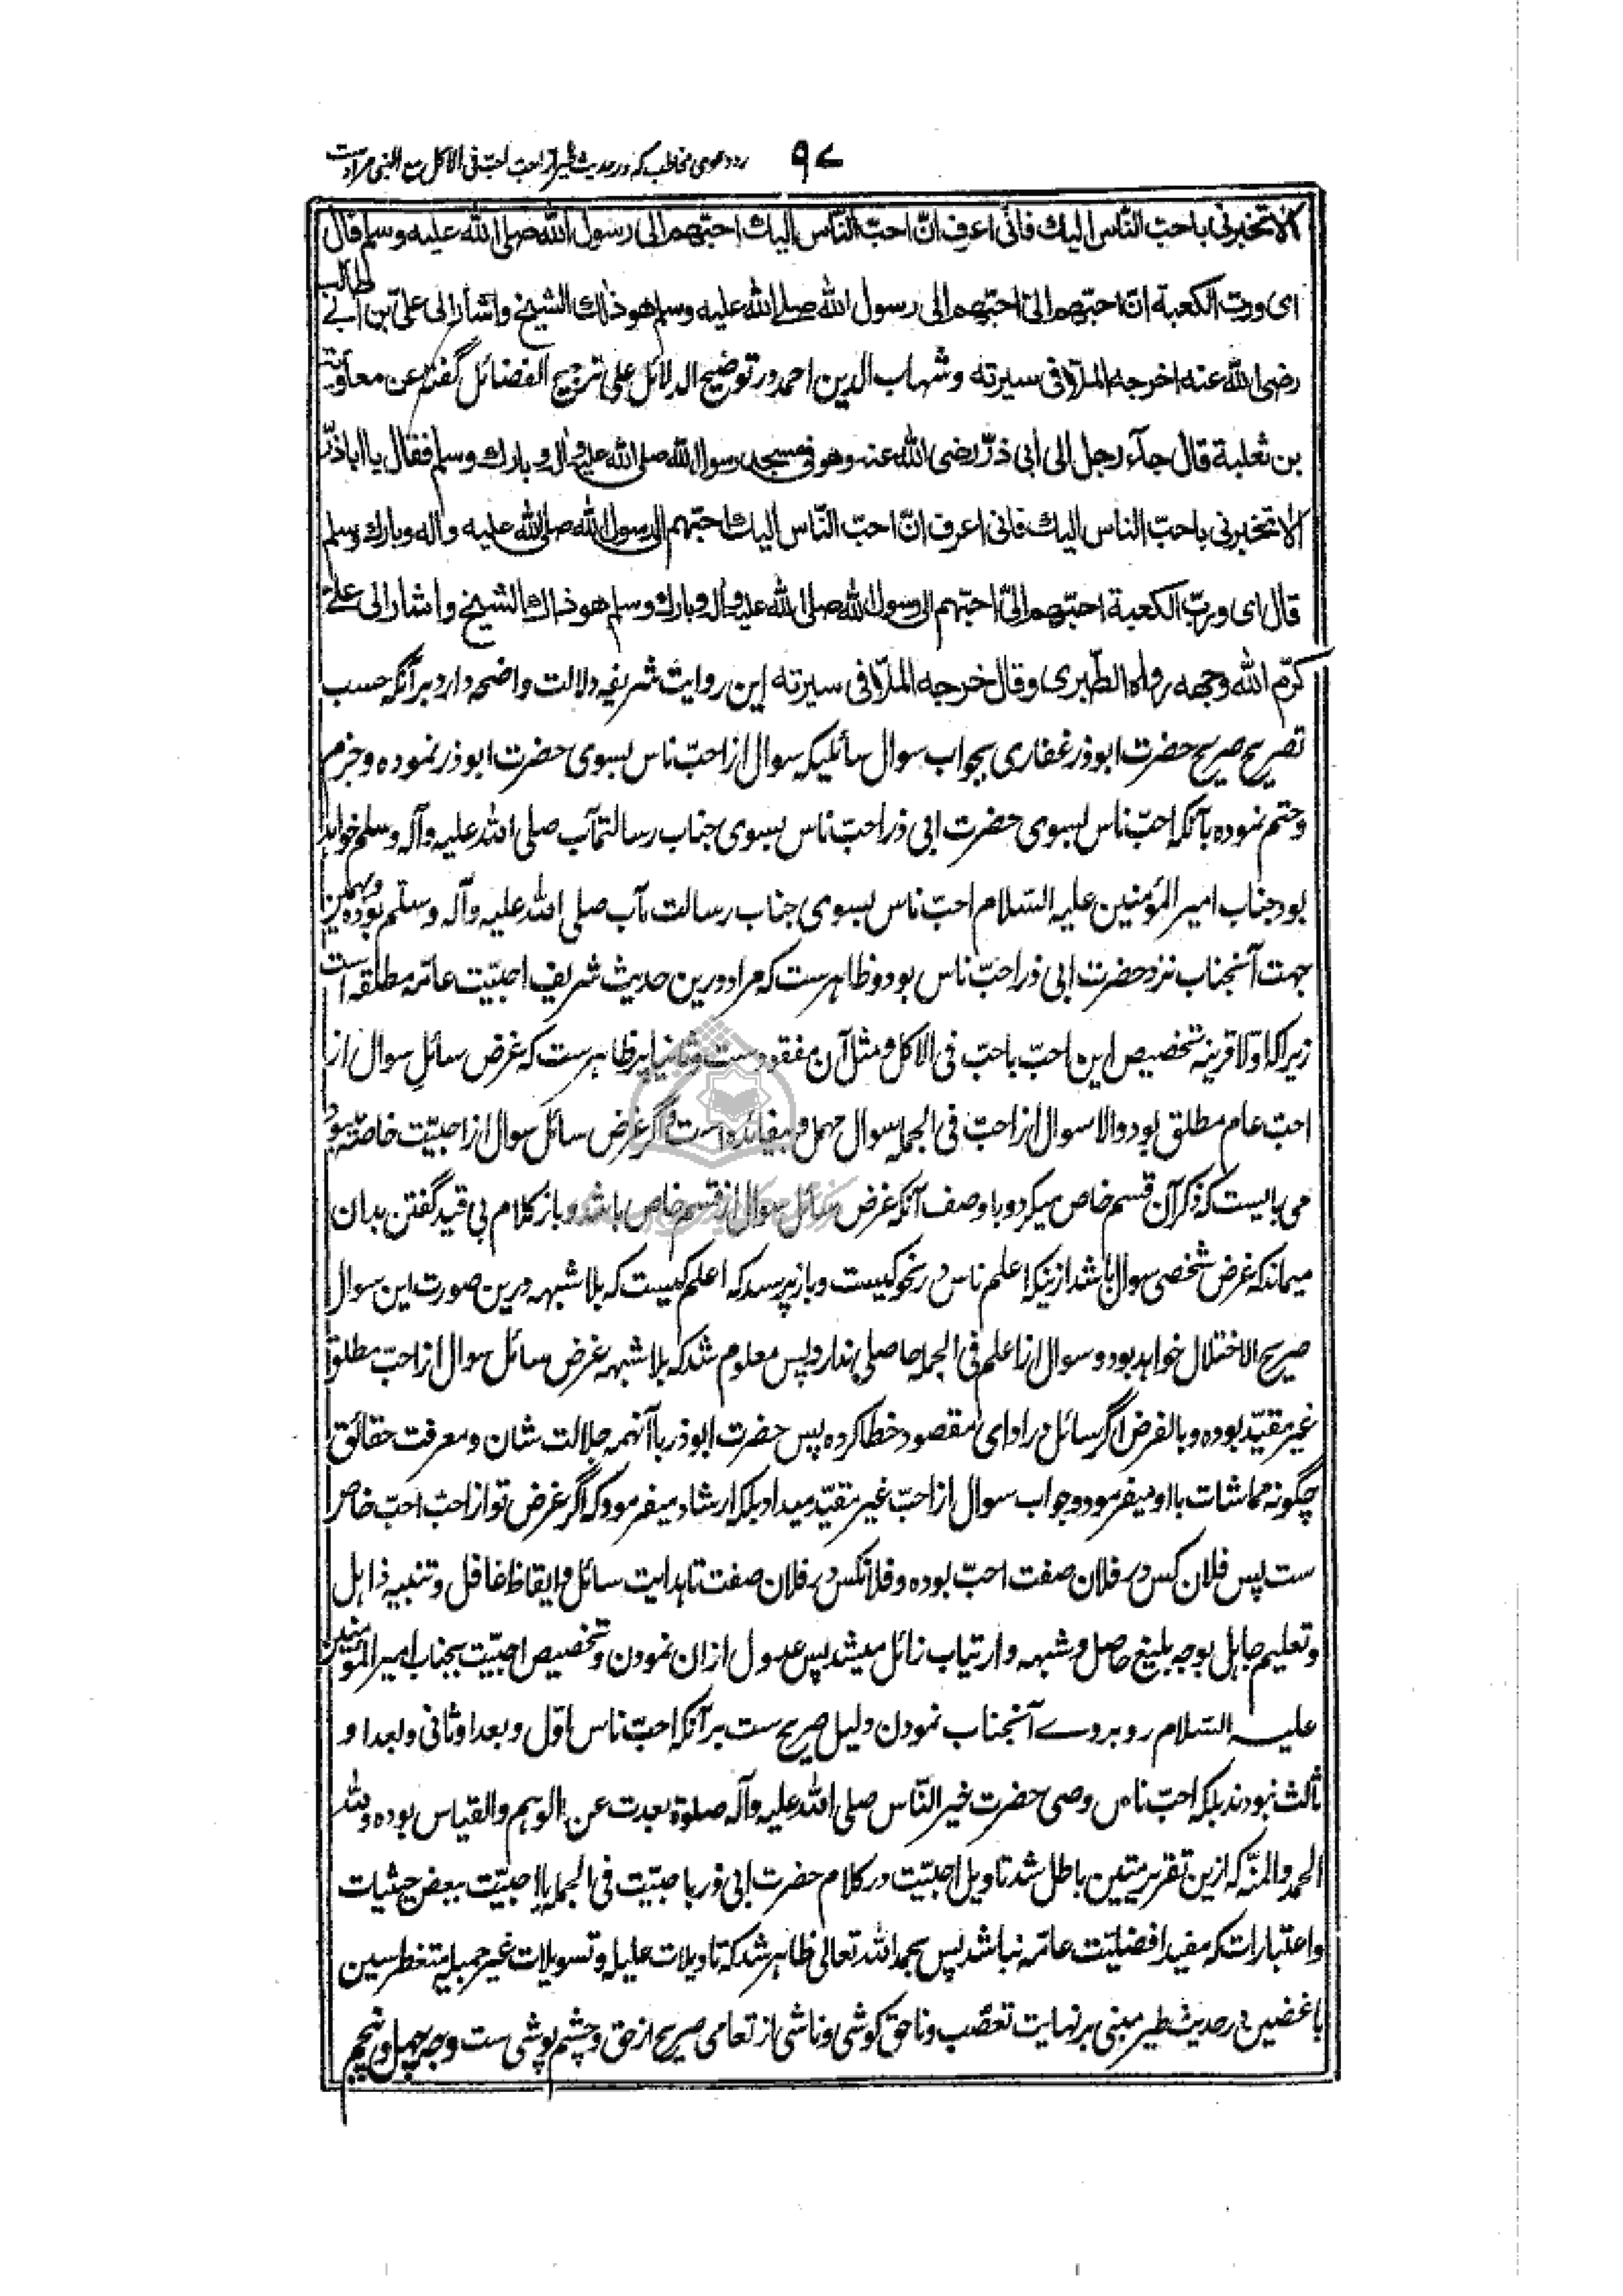 ۹۷ رد دعوی مخاطب که در حدیث طیر از احب احب فی الاکل مع النبی مراد است
الا تخبرنی باحبّ النّاس الیك فانّی اعرف انّ احبّ النّاس الیك احبّهم الی رسول الله صلی الله علیه وسلم قال
ای وربّ الکعبة انّ احبّهم الیّ احبّهم الی رسول الله صلی الله علیه وسلم هو ذاك الشیخ واشار الی علیّ بن ابی طالب
رضی الله عنه اخرجه الملّا فی سیرته وشهاب الدین احمد در توضیح الدلائل علی ترجیح الفضائل گفته عن معاویة
بن ثعلبة قال جآء رجل الی ابی ذرّ رضی الله عنه وهو فی مسجد رسول الله صلی الله علیه وآله وبارك وسلم فقال یا اباذرّ
الا تخبرنی باحبّ الناس الیك فانی اعرف انّ احبّ النّاس الیك احبّهم الی رسول الله صلی الله علیه وآله وبارك وسلم
قال ای وربّ الکعبة احبّهم الیّ احبّهم الی رسول الله صلی الله علیه وآله وبارك وسلم هو ذاك الشیخ واشار الی علیّ
کرّم الله وجهه رواه الطّبری وقال خرجه الملّا فی سیرته این روایت شریفه دلالت واضحه دارد برآنکه حسب
تصریح صریح حضرت ابوذر غفاری بجواب سوال سائلیکه سوال از احبّ ناس بسوی حضرت ابوذر نموده وجزم
وحتم نموده بآنکه احبّ ناس بسوی حضرت ابی ذر احبّ ناس بسوی جناب رسالتمآب صلی الله علیه وآله وسلم خواهد
بود جناب امیر المؤمنین علیه السّلام احبّ ناس بسوی جناب رسالت مآب صلی الله علیه وآله وسلم بوده وبهمین
جهت آنجناب نزد حضرت ابی ذر احبّ ناس بود وظاهرست که مراد درین حدیث شریف احبّیت عامّه مطلقه است
زیرا که اولا قرینه تخصیص این احبّ باحبّ فی الاکل ومثل آن مفقودست وثانیا پر ظاهرست که غرض سائل سوال از
احبّ عام مطلق بود والا سوال از احبّ فی الجمله سوال مهمل وبیفائده است واگر غرض سائل سوال از احبّیت خاصّه بود
می بایست که ذکر آن قسم خاص میکرد وباوصف آنکه غرض سائل سوال از قسم خاص باشد وباز کلام بی قید گفتن بدان
میماند که غرض شخصی سوال باشد ازینکه اعلم ناس در نحو کیست وباز پرسد که اعلم کیست که بلا شبهه درین صورت این سوال
صریح الاختلال خواهد بود وسوال از اعلم فی الجمله حاصلی ندارد پس معلوم شد که بلا شبهه غرض سائل سوال از احبّ مطلق
غیر مقیّد بوده وبالفرض اگر سائل در ادای مقصود خطا کرده پس حضرت ابوذر باآنهمه جلالت شان ومعرفت حقائق
چگونه مماشات با او میفرمود وجواب سوال از احبّ غیر مقیّد میداد بلکه ارشاد میفرمود که اگر غرض تو از احبّ احبّ خاص
ست پس فلان کس در فلان صفت احبّ بوده وفلانکس در فلان صفت تا هدایت سائل وایقاظ غافل وتنبیه ذاهل
وتعلیم جاهل بوجه بلیغ حاصل وشبهه وارتیاب زائل میشد پس عدول ازان نمودن وتخصیص احبّیت بجناب امیر المؤمنین
علیه السّلام روبروے آنجناب نمودن دلیل صریح ست برآنکه احبّ ناس اوّل وبعد او ثانی وبعد او
ثالث نبودند بلکه احبّ ناس وصی حضرت خیر النّاس صلی الله علیه وآله صلوة بعدت عن الوهم والقیاس بوده ولله
الحمد والمنّه که ازین تقریر متین باطل شد تاویل احبّیت در کلام حضرت ابی ذر باحبّیت فی الجمله یا احبّیت ببعض حیثیات
واعتبارات که مفید افضلیّت عامّه نباشد پس بحمد الله تعالی ظاهر شد که تاویلات علیله وتسویلات غیر جمیله متغطرسین
باغضین در حدیث طیر مبنی بر نهایت تعصّب وناحق کوشی وناشی از تعامی صریح از حق وچشم پوشی ست وجه چهل وپنجم